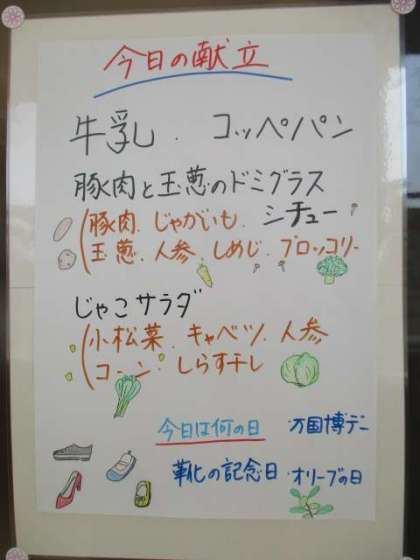 今日の献立
牛乳．コッペパン
豚肉と玉葱のドミグラス
シチュー
豚肉．じゃがいも．
玉葱．人参．しめじ．ブロッコリー
じゃこサラダ
小松菜．キャベツ．人参
コーン．しらす干し
今日は何の日 万国博デー
靴の記念日．オリーブの日